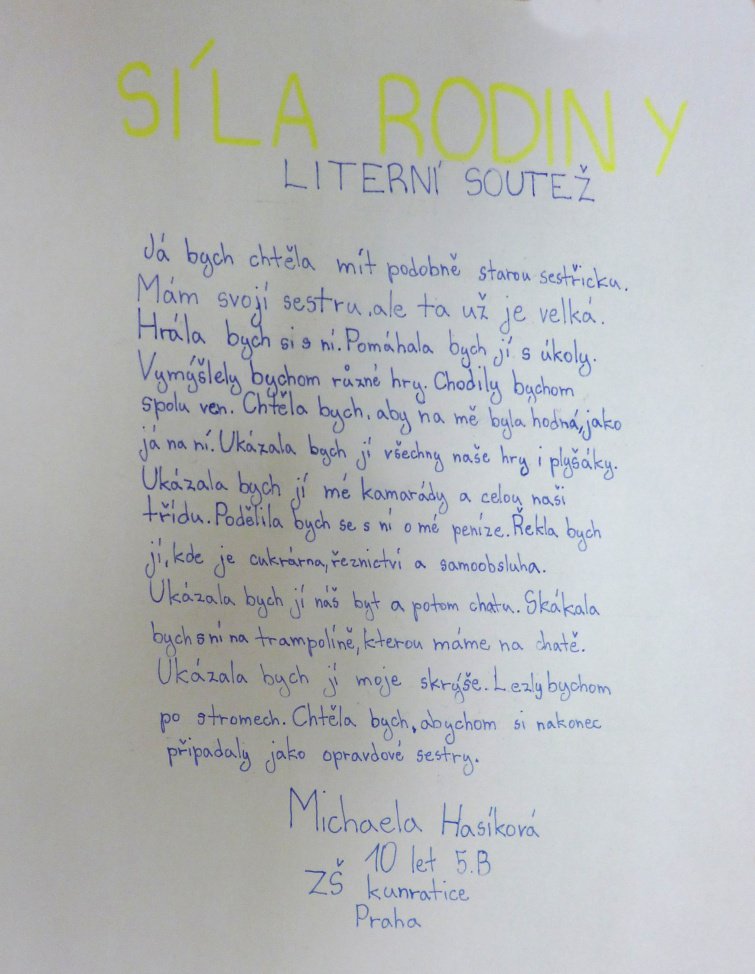 SÍLA RODINY
LITERNÍ SOUTEŽ
Já bych chtěla mít podobně starou sestřičku.
Mám svojí sestru, ale ta už je velká.
Hrála bych si s ní. Pomáhala bych jí s úkoly.
Vymýšlely bychom různé hry. Chodily bychom
spolu ven. Chtěla bych, aby na mě byla hodná, jako
já na ní. Ukázala bych jí všechny naše hry i plyšáky.
Ukázala bych jí mé kamarády a celou naši
třídu. Podělila bych se s ní o mé peníze. Řekla bych
jí, kde je cukrárna, řeznictví a samoobsluha.
Ukázala bych jí náš byt a potom chatu. Skákala
bych s ní na trampolíně, kterou máme na chatě.
Ukázala bych jí moje skrýše. Lezly bychom
po stromech. Chtěla bych, abychom si nakonec
připadaly jako opravdové sestry.
Michaela Hasíková
10 let 5.B
ZŠ kunratice
Praha